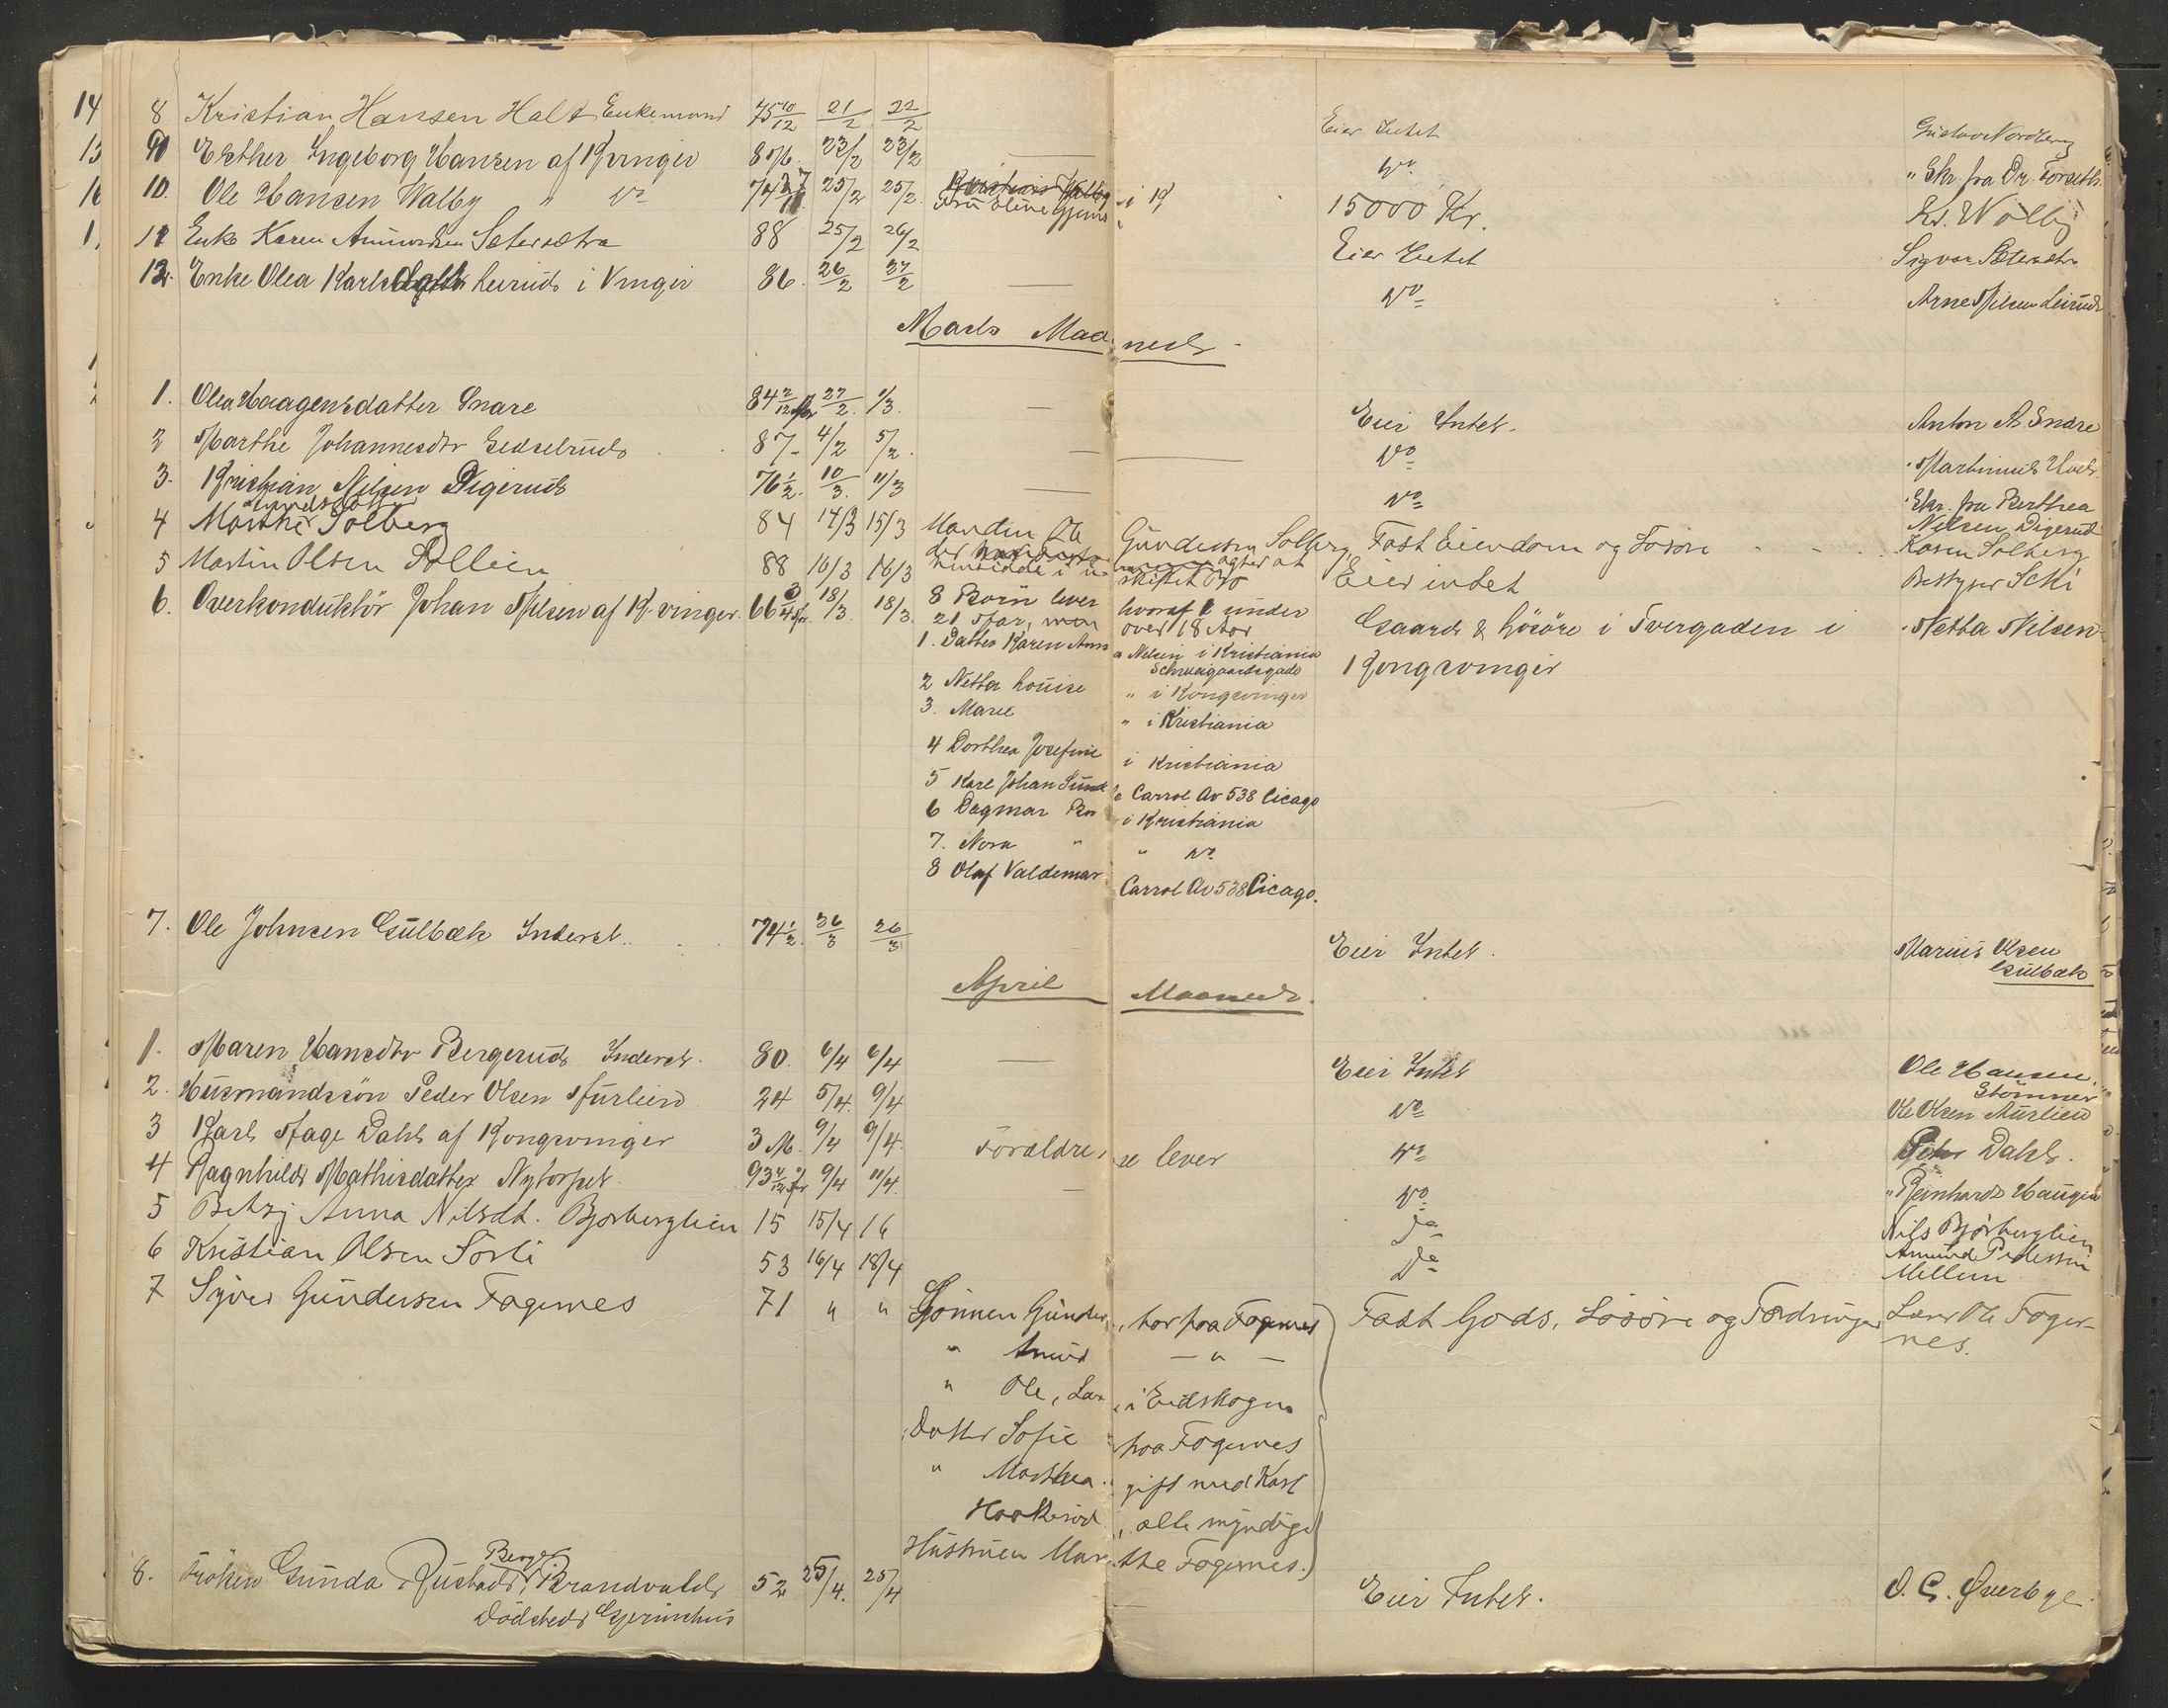 8 Kristian Hansen Halt Enkemand 75 10/12 21/2 22/2 Eier Intet Gustav Nordberg
9 Esther Ingeborg Hansen af Kvinger 23/2 23/2 — Do " Skr. fra Dr. Forseth
10. Ole Hansen Walby " Do 74 25/2 25/2 i K 15000 Kr. Kr. Walby
11 Enke Karen Amundsen Sætersætra 88 25/2 26/2 Eier Intet Sigvar Sætersætra
12. Enke Olea Karlsdatter Leirud i Vinger 86. 26/2 27/2 — Do Arne Nilsen Leirud
Marts Maaned
1. Olea Haagensdatter Snare 84 2/12 27/2. 1/3. — Eier Intet. Anton A. Snare
2 Marthe Johannesdtr Gedselrud 87 4/2 5/2. — Do
3. Kristian Nilsen Digerud 76 1/2. 10/3. 11/3 — Do Skr. fra Berthea
Nilsen Digerud
4 Marthe Solberg 84 14/3 15/3 Manden Ole Gundersen Solberg Fast Eiendom og Løsøre Karen Solberg
agter at
hensidde i uskiftet Bo
5 Martin Olsen Sollien 88 16/3 16/3 Eier intet Bestyrer Schi
6. Overkonduktør Johan Nilsen af K.vinger. 66 3/4 18/3 18/3 8 Børn lever hvoraf under
21 Aar, men over 18 Aar Gaard & Løsøre i Tvergaden i Netta Nilsen
1. Datter Karen Anna Nilsen i Kristiania
Schweigaardsgade Kongsvinger
2 Netta Louise " i Kongsvinger
3. Marie " i Kristiania
4 Dorthea Josefine i Kristiania
5 Karl Johan Carrol Av 538 Cicago
6 Dagmar i Kristiania
7. Nora " " Do
8 Olaf Valdemar Carrol Av 538 Cicago.
7. Ole Johnsen Gulbæk Inderst. 74 1/2. 26/3 26/3 Eier Intet. Marius Olsen
Gulbæk
April Maaned.
1. Maren Hansdtr Bergerud Inderst. 80. 6/4 6/4 — Eier Intet Ole Hansen
Stømner
2. Husmandssøn Peder Olsen Aurlien 24 5/4. 9/4 Do Ole Olsen Aurlien
3 Karl Aage Dahl af Kongsvinger 3 M. 9/4 9/4. Forældrene lever Do Peter Dahl.
4 Ragnhild Mathisdatter Nytorpet. 93 9/4 11/4. — Do " Reinhard Haugen
5 Betzy Anna Nilsdt. Bjørberglien 15 15/4 16 Do Nils Bjørberglien
6 Kristian Olsen Sorli 53 16/4 18/4 Do Amund Pedersen
Mellem
7 Syver Gundersen Fagernes 71 " " Sønnen Gunder, bor paa Fagernes Fast Gods, Løsøre og Fordringer Lærer Ole Fager-
nes.
" Amund — " —
" Ole, Lærer i Eidskogen
Datter Sofie paa Fagernes
" Marthea gift med Karl
alle myndige
Hustruen Marthe Fagernes.
8. Frøken Gunda Rustad, Berger Brandvald 52 25/4. 25/4 Eier Intet. O. G. Øverbye.
Dødsted Gjermshus